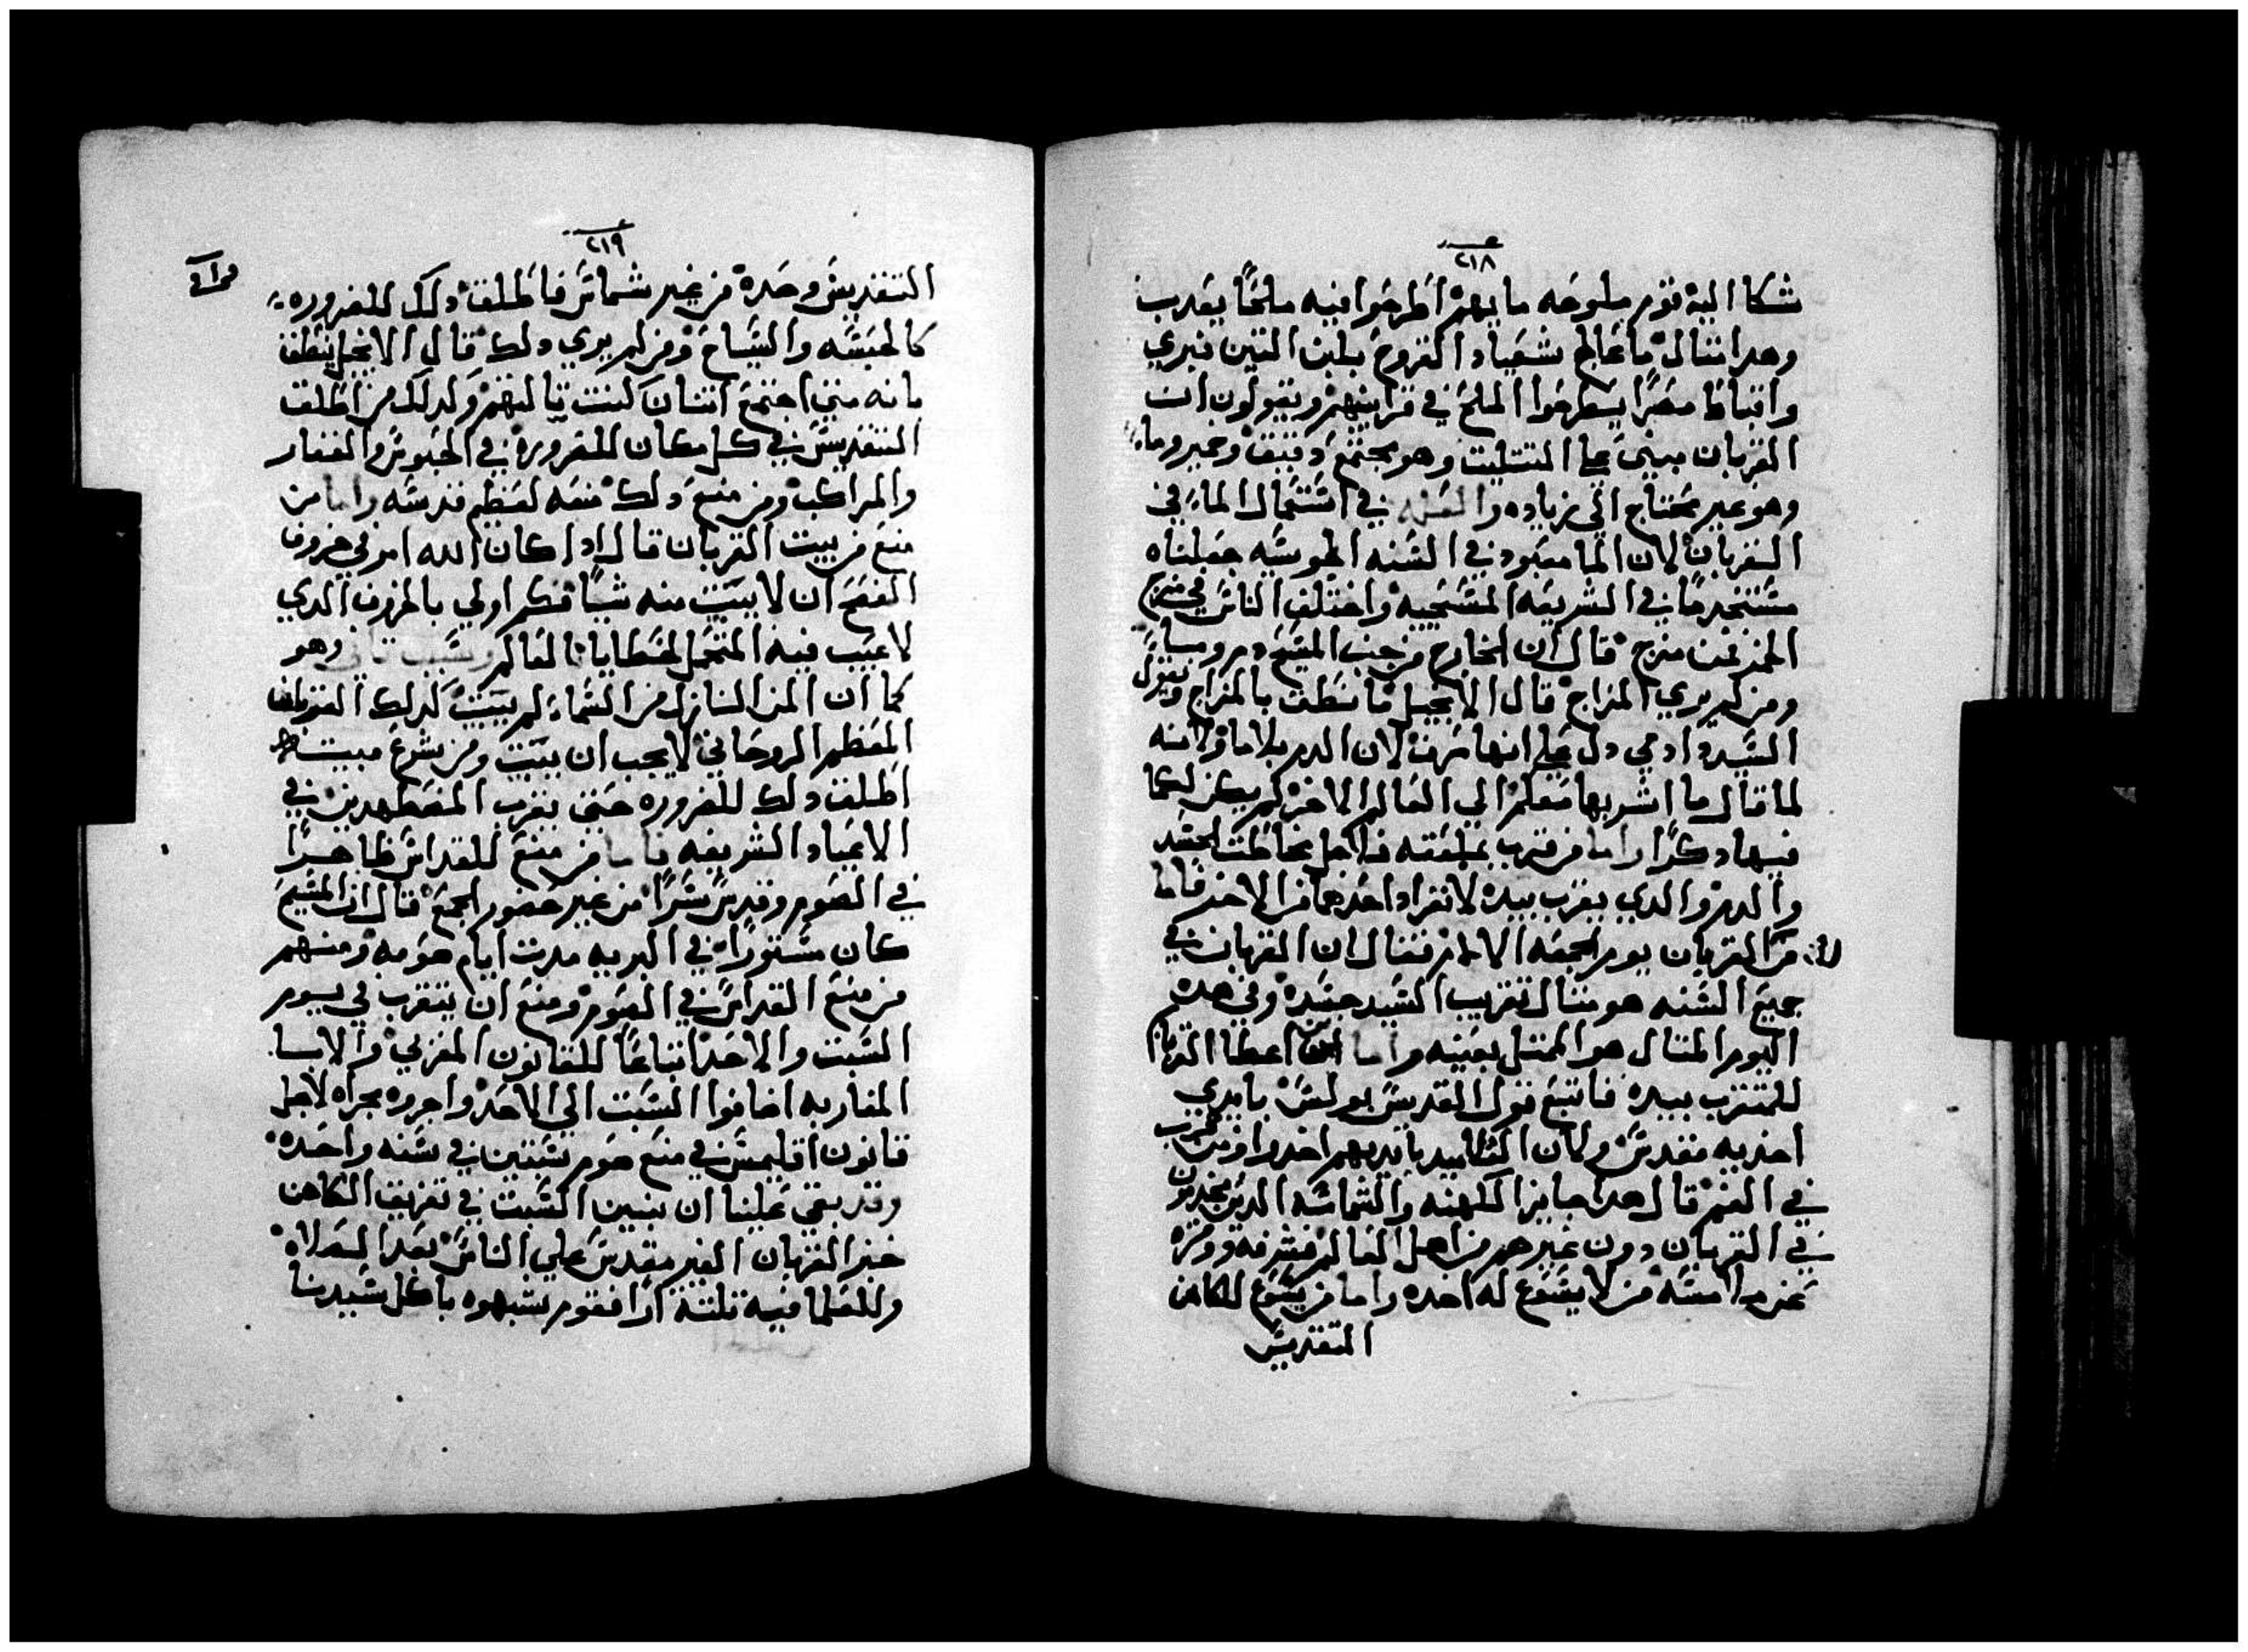 ٢١٨
شكا اليه قوم ملوحه مايهم اطرحوا فيه ملحًا يعدب
وهدا مثال ما عالج شعيا القروح بلبن التين فبري
واقباط مصر يطرحوا الملح في قرابينهم ويقولون ان
القربان مبني علي التتليت وهو مجتمع دقيق وخمير وماء
وهو غير محتاج الي زياده والعله في استتمال الماء في
القربان لان الما معبود في السنه الحوسيه جعلناه
مستخدمًا في الشريعه المسيحيه واختلف الناس في مزج
الخمر فمن مزج قال ان الخارج من جنب المسيح دم وما
ومن لم يري المزاج قال الانجيل ما نطق بالمزاج وبقول
السيد دمي دل علي انها صرف لان الدم بلا ما ولانه
لما قال ما اشربها معكم الي العالم الاخر لم يكن للما
فيها دكرًا واما من قرب بملعقته فلاجل مخالطت الجسد
والدم والدي يقرب بيده لانفراد احدهما من الاخر فاما
من القربان يوم الجمعه الالام فقال ان القربان في
جميع السنه هو مثال تقريب السيد جسده وفي هده
اليوم المثال هو الممتل بعينه واما اعطا القربان
للمتقرب بيده فاتبع قول القديس بولس بايدي
اخديه مقدس ولان التلاميد بايديهم اخدوا ومن قرب
في الفم قال هدا جايز الكهنه والشمامسه الدين يخدمون
في القربان دون غيرهم من اهل العالم فشرفه ونزه
عن لامسه من لا يسوغ له اخده واما من يسوغ للكاهن
التقديس
٢١٩
التقديس وحده من غير شماس فاطلق دلك للضروره
كالحبشه والسياح ومن لم يري دلك قال الانجيل ينطق
بانه متي اجتمع اتنان كنت تالتهم ولدلك من اطلق
التقديس في كل مكان للضروره في الحبوس والقفار
والمراكب ومن منع دلك منعه لعظم قدسه واما من
منع من بيت القربان قال ادا كان الله امر في خروف
الفصح ان لا يبيت منه شيًا فكم اولي بالخروف الدي
لا عيب فيه المتحمل لخطايا العالم وسبب تاني وهو
كما ان المن النازل من السماء لم يبيت كدلك القربان
المعظم الروحاني لا يجب ان يبيت ومن يشرع مبيت
اطلق دلك للضروره حتي يقرب المضطهدين في
الاعياد الشريفه واما من منع للقداس ظاهرًا
في الصوم وقدس سرًا من غير حضور الجمع قال ان المسيح
كان مستورًا في البريه مدت ايام صومه ومنهم
من منع القداس في الصوم ومنع ان يتقرب في يوم
السبت والاحد اتباعًا للقانون المغربي والابا
المغاربه اضافوا السبت الي الاحد واجروه مجراه لاجل
قانون اقليمس في منع صوم سبتين في سنه واحده
وقد بقي علينا ان نبين السبت في تفريق الكاهن
خبز القربان الغير مقدس علي الناس بعد الصلاه
وللعلما فيه تلتة ارا فقوم يشبهوه باكل سيدنا